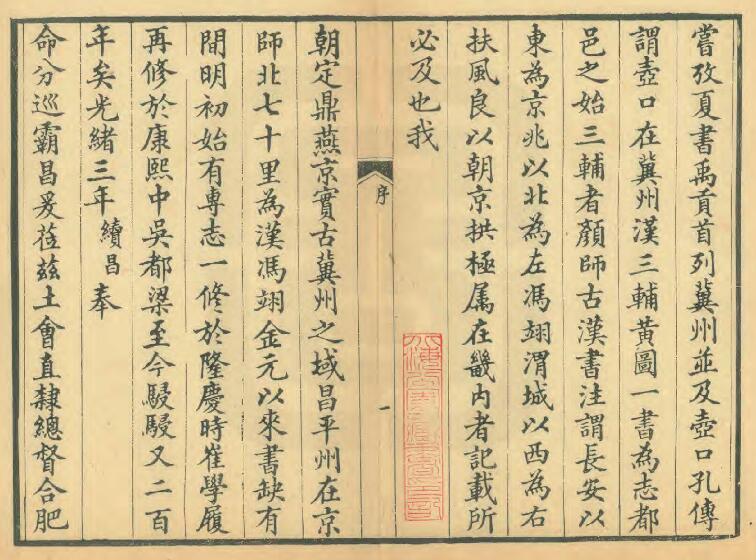 嘗攷夏書禹貢首列冀州並及壺口孔傳
謂壺口在冀州漢三輔黃圖一書為志都
邑之始三輔者顏師古漢書注謂長安以
東為京兆以北為左馮翊渭城以西為右
扶風良以朝京拱極属在畿内者記載所
必及也我
序
一
朝定鼎燕京實古冀州之域昌平州在京
師北七十里為漢馮翊金元以來書缺有
間明初始有專志一修於隆慶時崔學履
再修於康熙中吳都梁至今駸駸又二百
年矣光緒三年續昌奉
命分巡霸昌爰莅兹土會直隸總督合肥